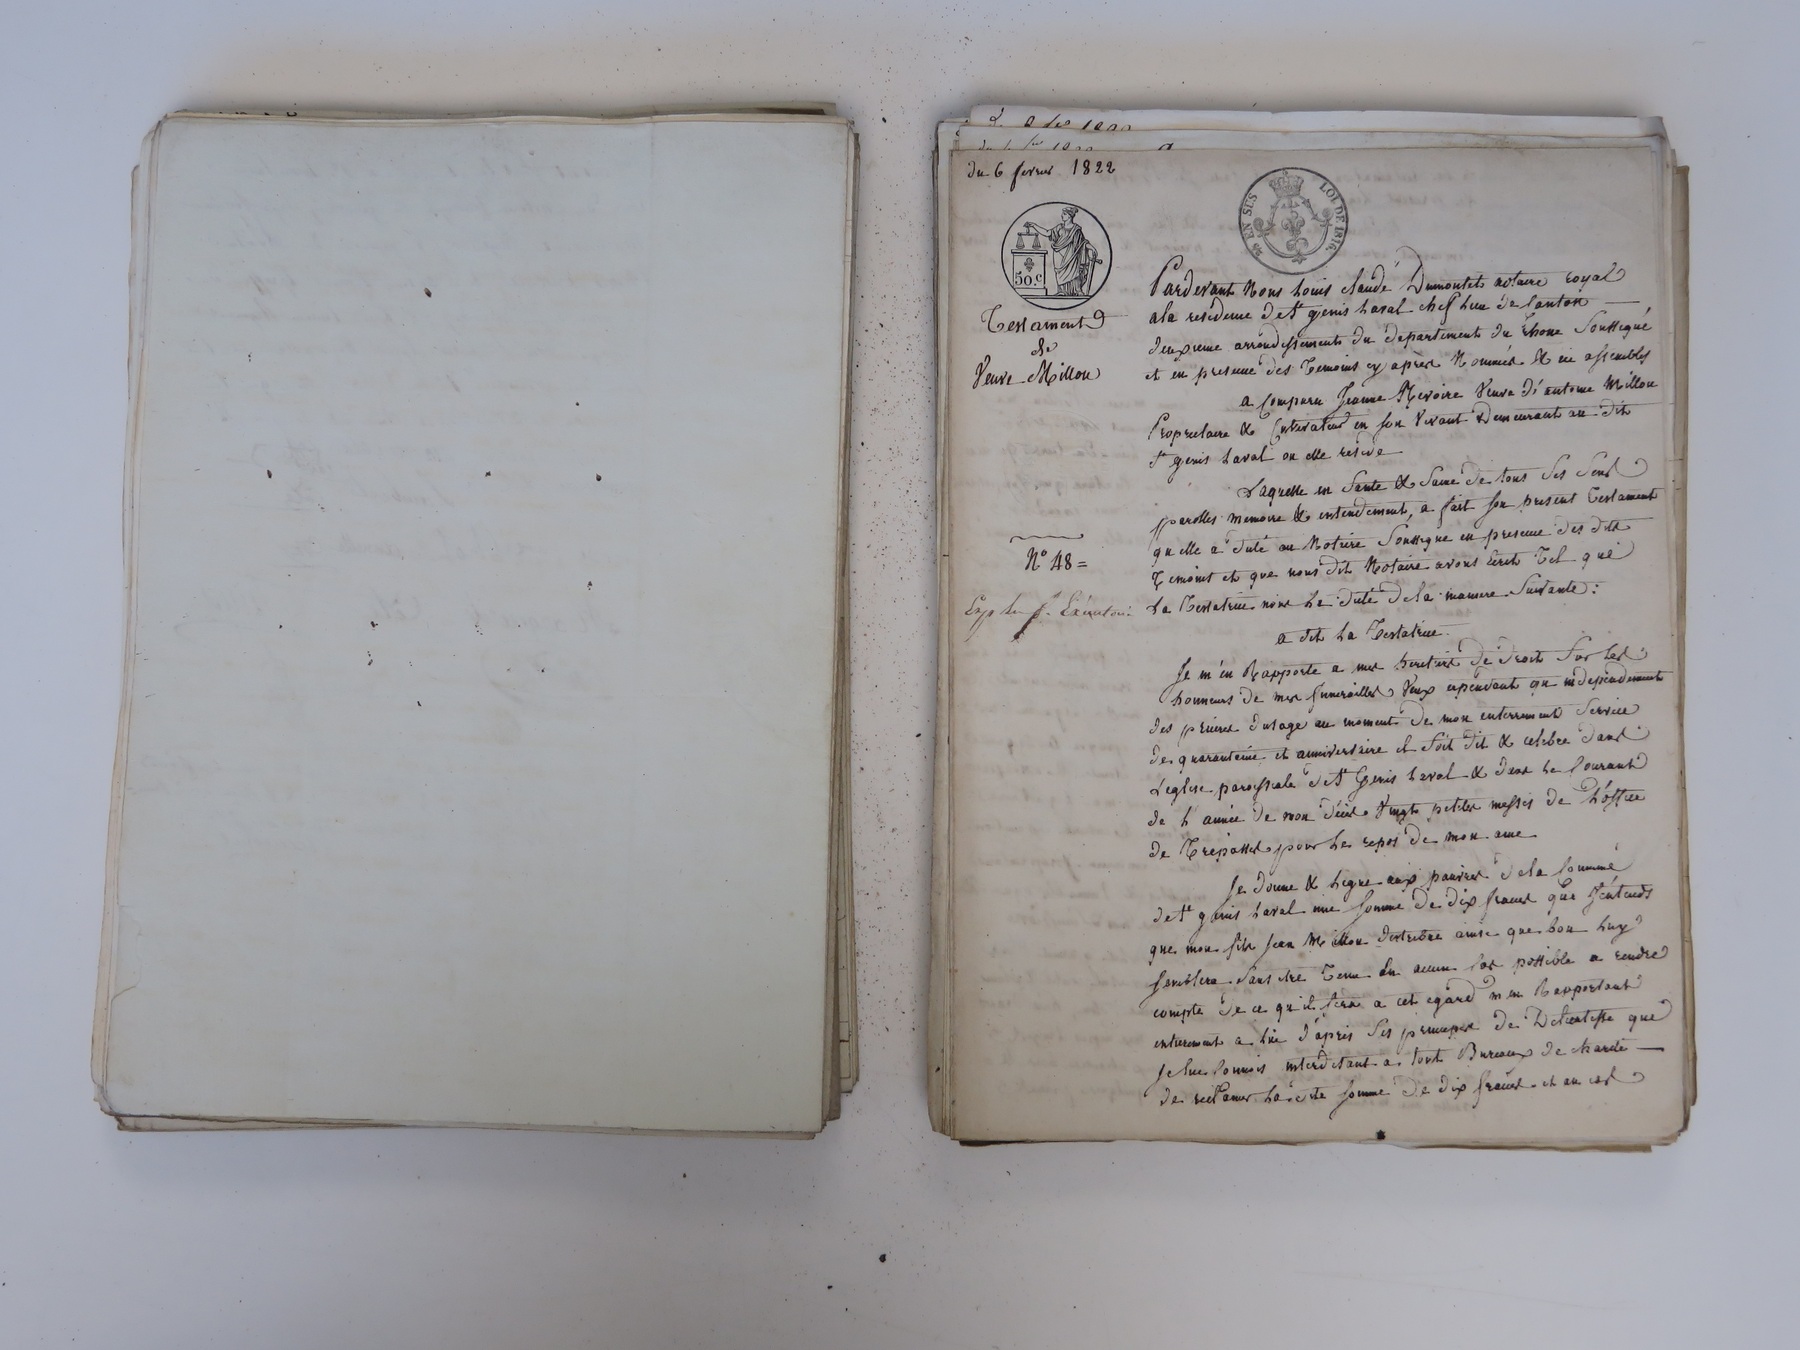 du 6 fevrier 1822
EN SUS
LOI DE 1816.
50.c
Testament
de
Veuve Millon
N° 48 =
Pardevant Nous Louis claude Dumontet notaire royal
ala residence de St genis Laval chef lieu de Canton —
deuxieme arrondissement du departement du Rhone Soussigné
et en presence des Temoins cy après Nommés & ici assemblés
a Comparu Jeanne Revoire Veuve d'antoine Millon
Proprietaire & Cultivateur en son Vivant Demeurant au dit
St genis Laval ou elle reside
Laquelle en Santé & Saine de tous Ses Sens
parolles memoire & entendement, a fait son present Testament
qu'elle a dicté au Notaire Soussigné en presence des dits
Temoins et que nous dit Notaire avons Ecrit Tel que
La Testatrice nous La dicté de la maniere Suivante :
a dit La Testatrice
Je m'en Rapporte a mes heritiers de droit Sur Les
honneurs de mes funerailles Veux cependant qu independament
des prieres dusage au moment de mon enterrement Service
de quarantaine et anniversaire il Soit dit & celebré dans
L'eglise paroissiale de St Genis Laval & dans Le Courant
de L'année de mon décès Vingt petites messes de L'office
de Trepassés pour Le repos de mon ame
Je donne & Legue aux pauvres de la Commune
de St genis Laval une somme de dix francs que J'entends
que mon fils Jean Millon distribue ainsi que bon Luy
semblera Sans etre Tenu En aucun Cas possible a rendre
compte de ce qu'il fera a cet egard m'en Rapportant
entierement a Lui d'après Ses principes de Délicatesse que
Je Lui Connois interdisant a tout Bureaux de charité —
de reclamer La dite somme de dix francs et au cas